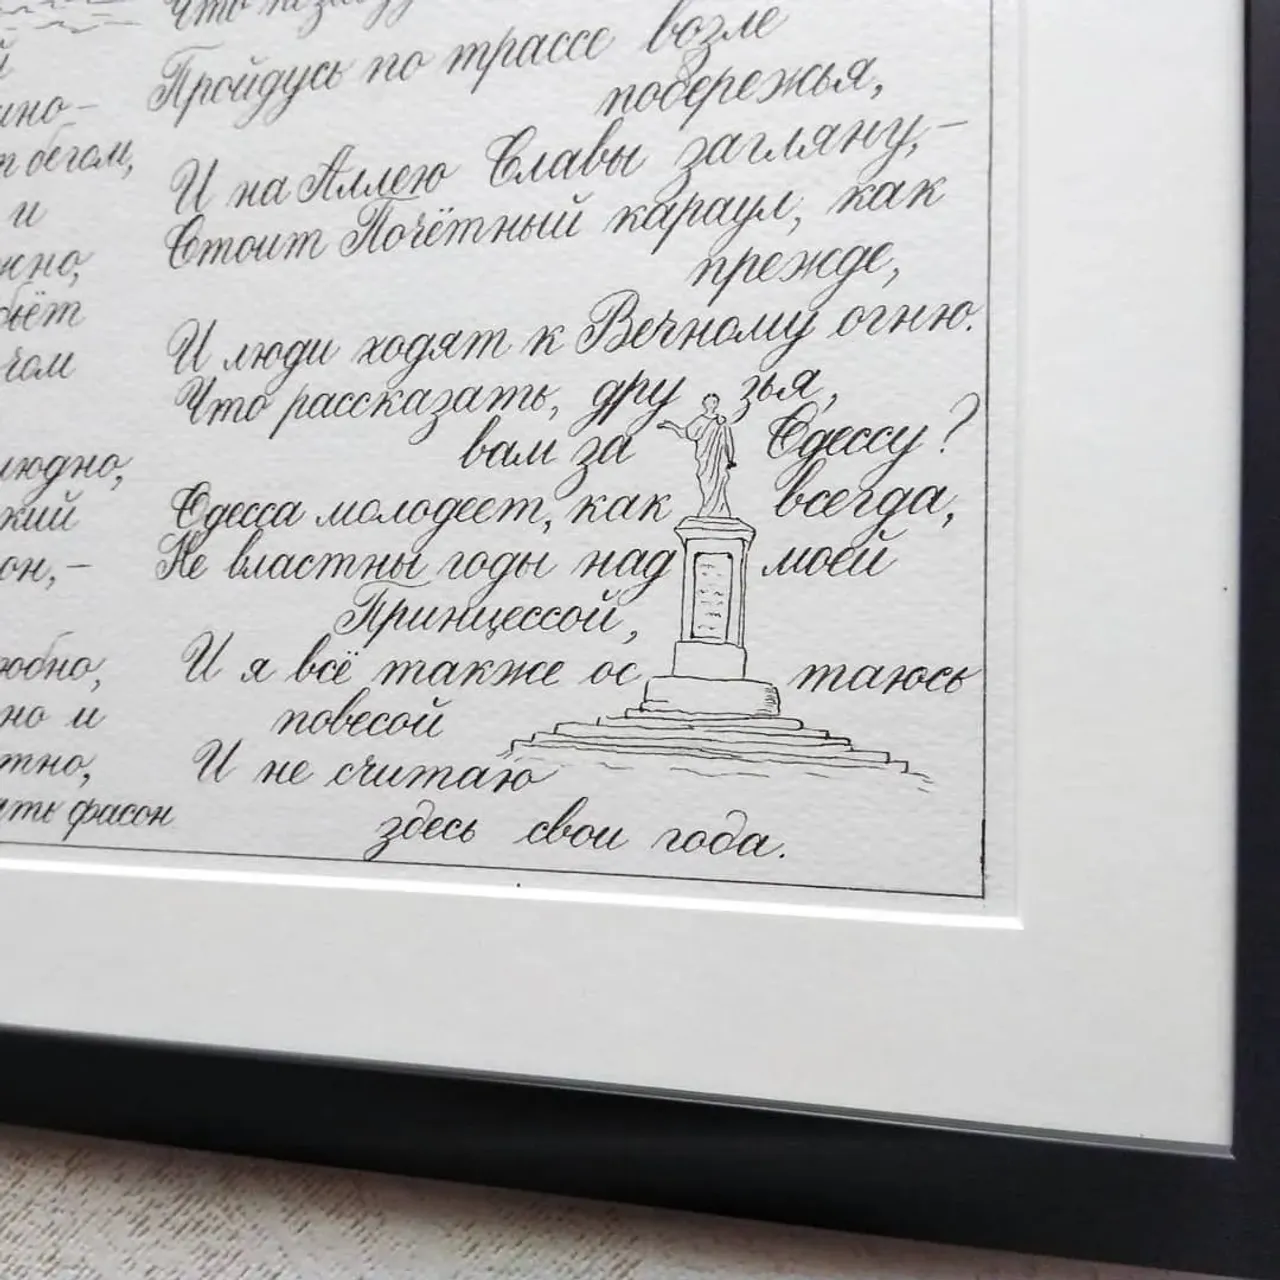 бегом,
и
фасон
Что
Пройдусь по трассе возле
побережья,
И на Аллею Славы загляну,–
Стоит Почётный караул, как
прежде,
И люди ходят к Вечному огню.
Что рассказать, друзья,
вам за Одессу?
Одесса молодеет, как всегда,
Не властны годы над моей
Принцессой,
И я всё также остаюсь
повесой
И не считаю
здесь свои года.